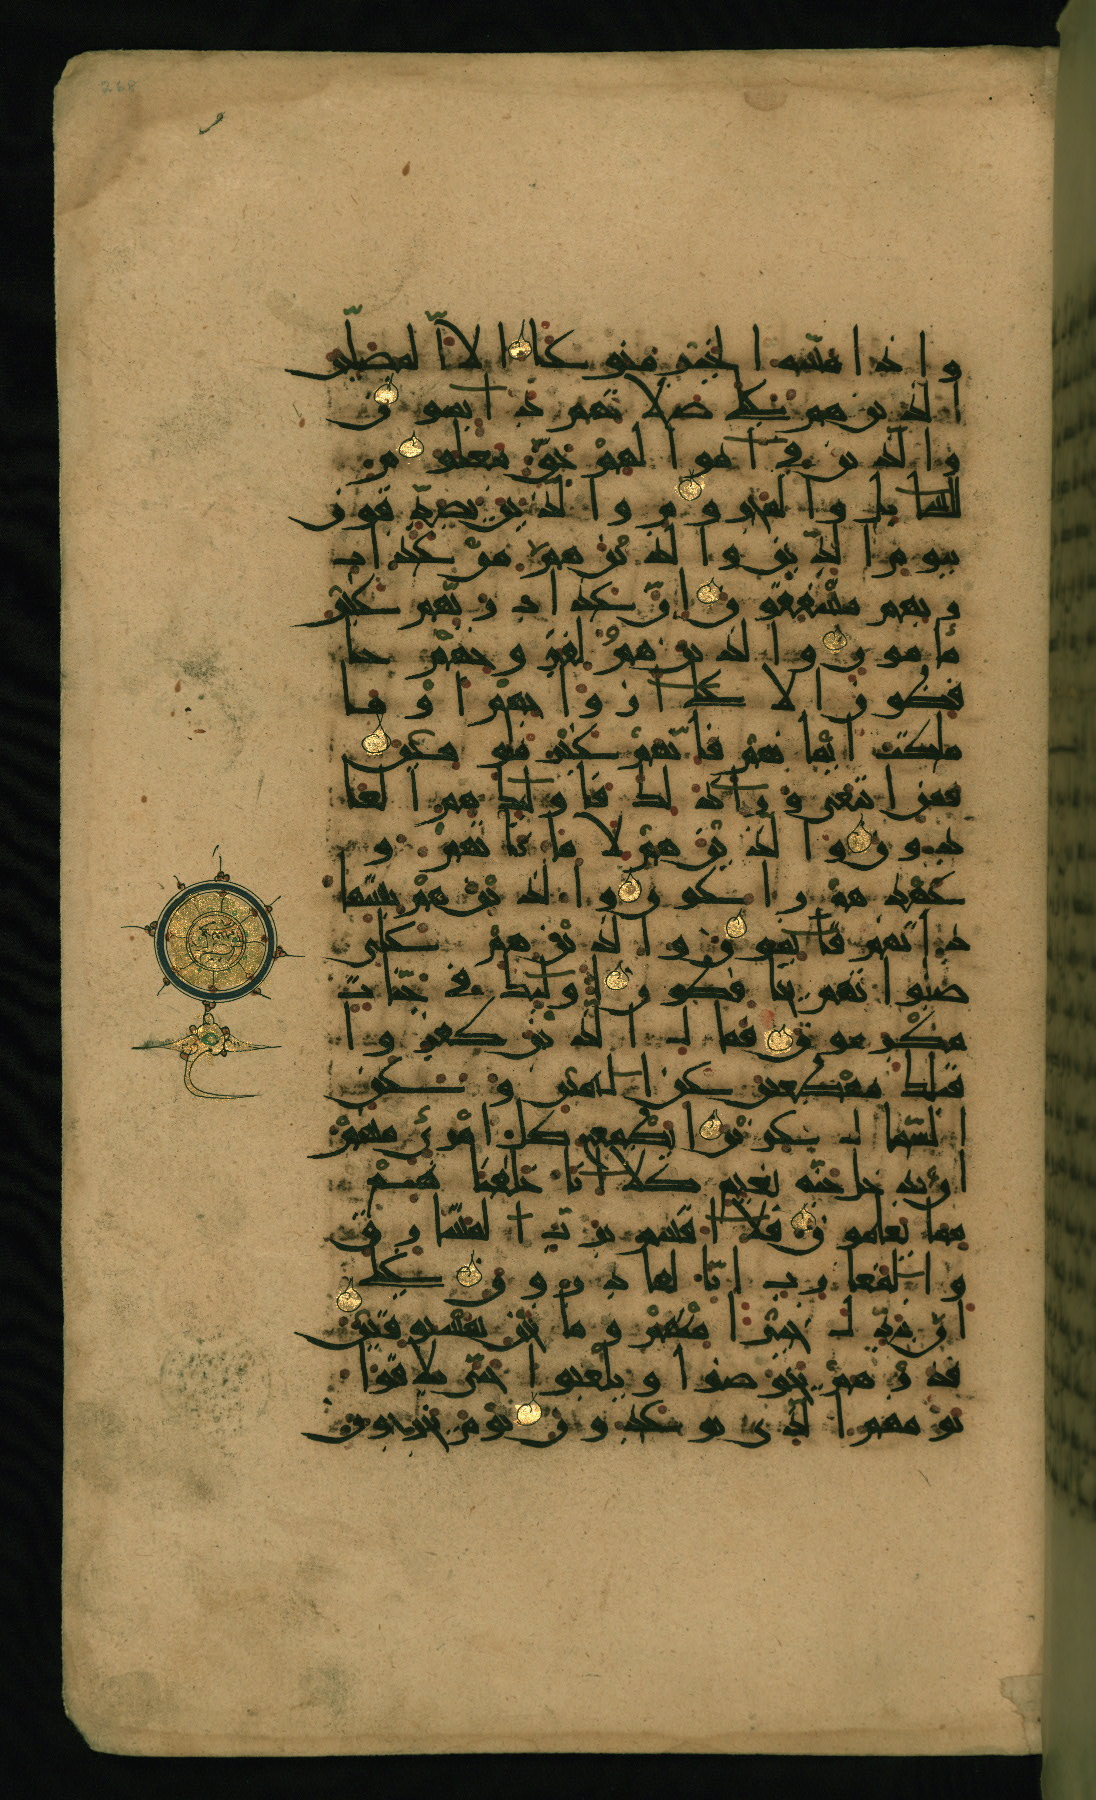 268
واذا مسه الخير منوعا الا المصلين
الذين هم على صلاتهم دائمون
والذين في اموالهم حق معلوم
للسائل والمحروم والذين يصدقون
بيوم الدين والذين هم من عذاب
ربهم مشفقون ان عذاب ربهم غير
مأمون والذين هم لفروجهم حا
فظون الا على ازواجهم او ما
ملكت ايمانهم فانهم غير ملومين
فمن ابتغى وراء ذلك فاولئك هم العا
دون والذين هم لاماناتهم و
عهدهم راعون والذين هم بشها
داتهم قائمون والذين هم على
صلواتهم يحافظون اولئك في جنات
مكرمون فمال الذين كفروا
قبلك مهطعين عن اليمين وعن
الشمال عزين ايطمع كل امرئ منهم
ان يدخل جنة نعيم كلا انا خلقناهم
مما يعلمون فلا اقسم برب المشارق
والمغارب انا لقادرون على
ان نبدل خيرا منهم وما نحن بمسبوقين
فذرهم يخوضوا ويلعبوا حتى يلاقوا
يومهم الذي يوعدون يوم يخرجون